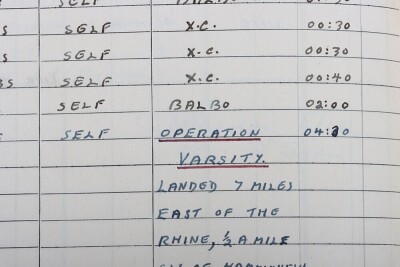 SELF
S SELF X.C. 00:30
S SELF X.C. 00:30
BS SELF X.C. 00:40
SELF BALBO 02:00
SELF OPERATION
VARSITY.
LANDED 7 MILES
EAST OF THE
RHINE, ½ A MILE